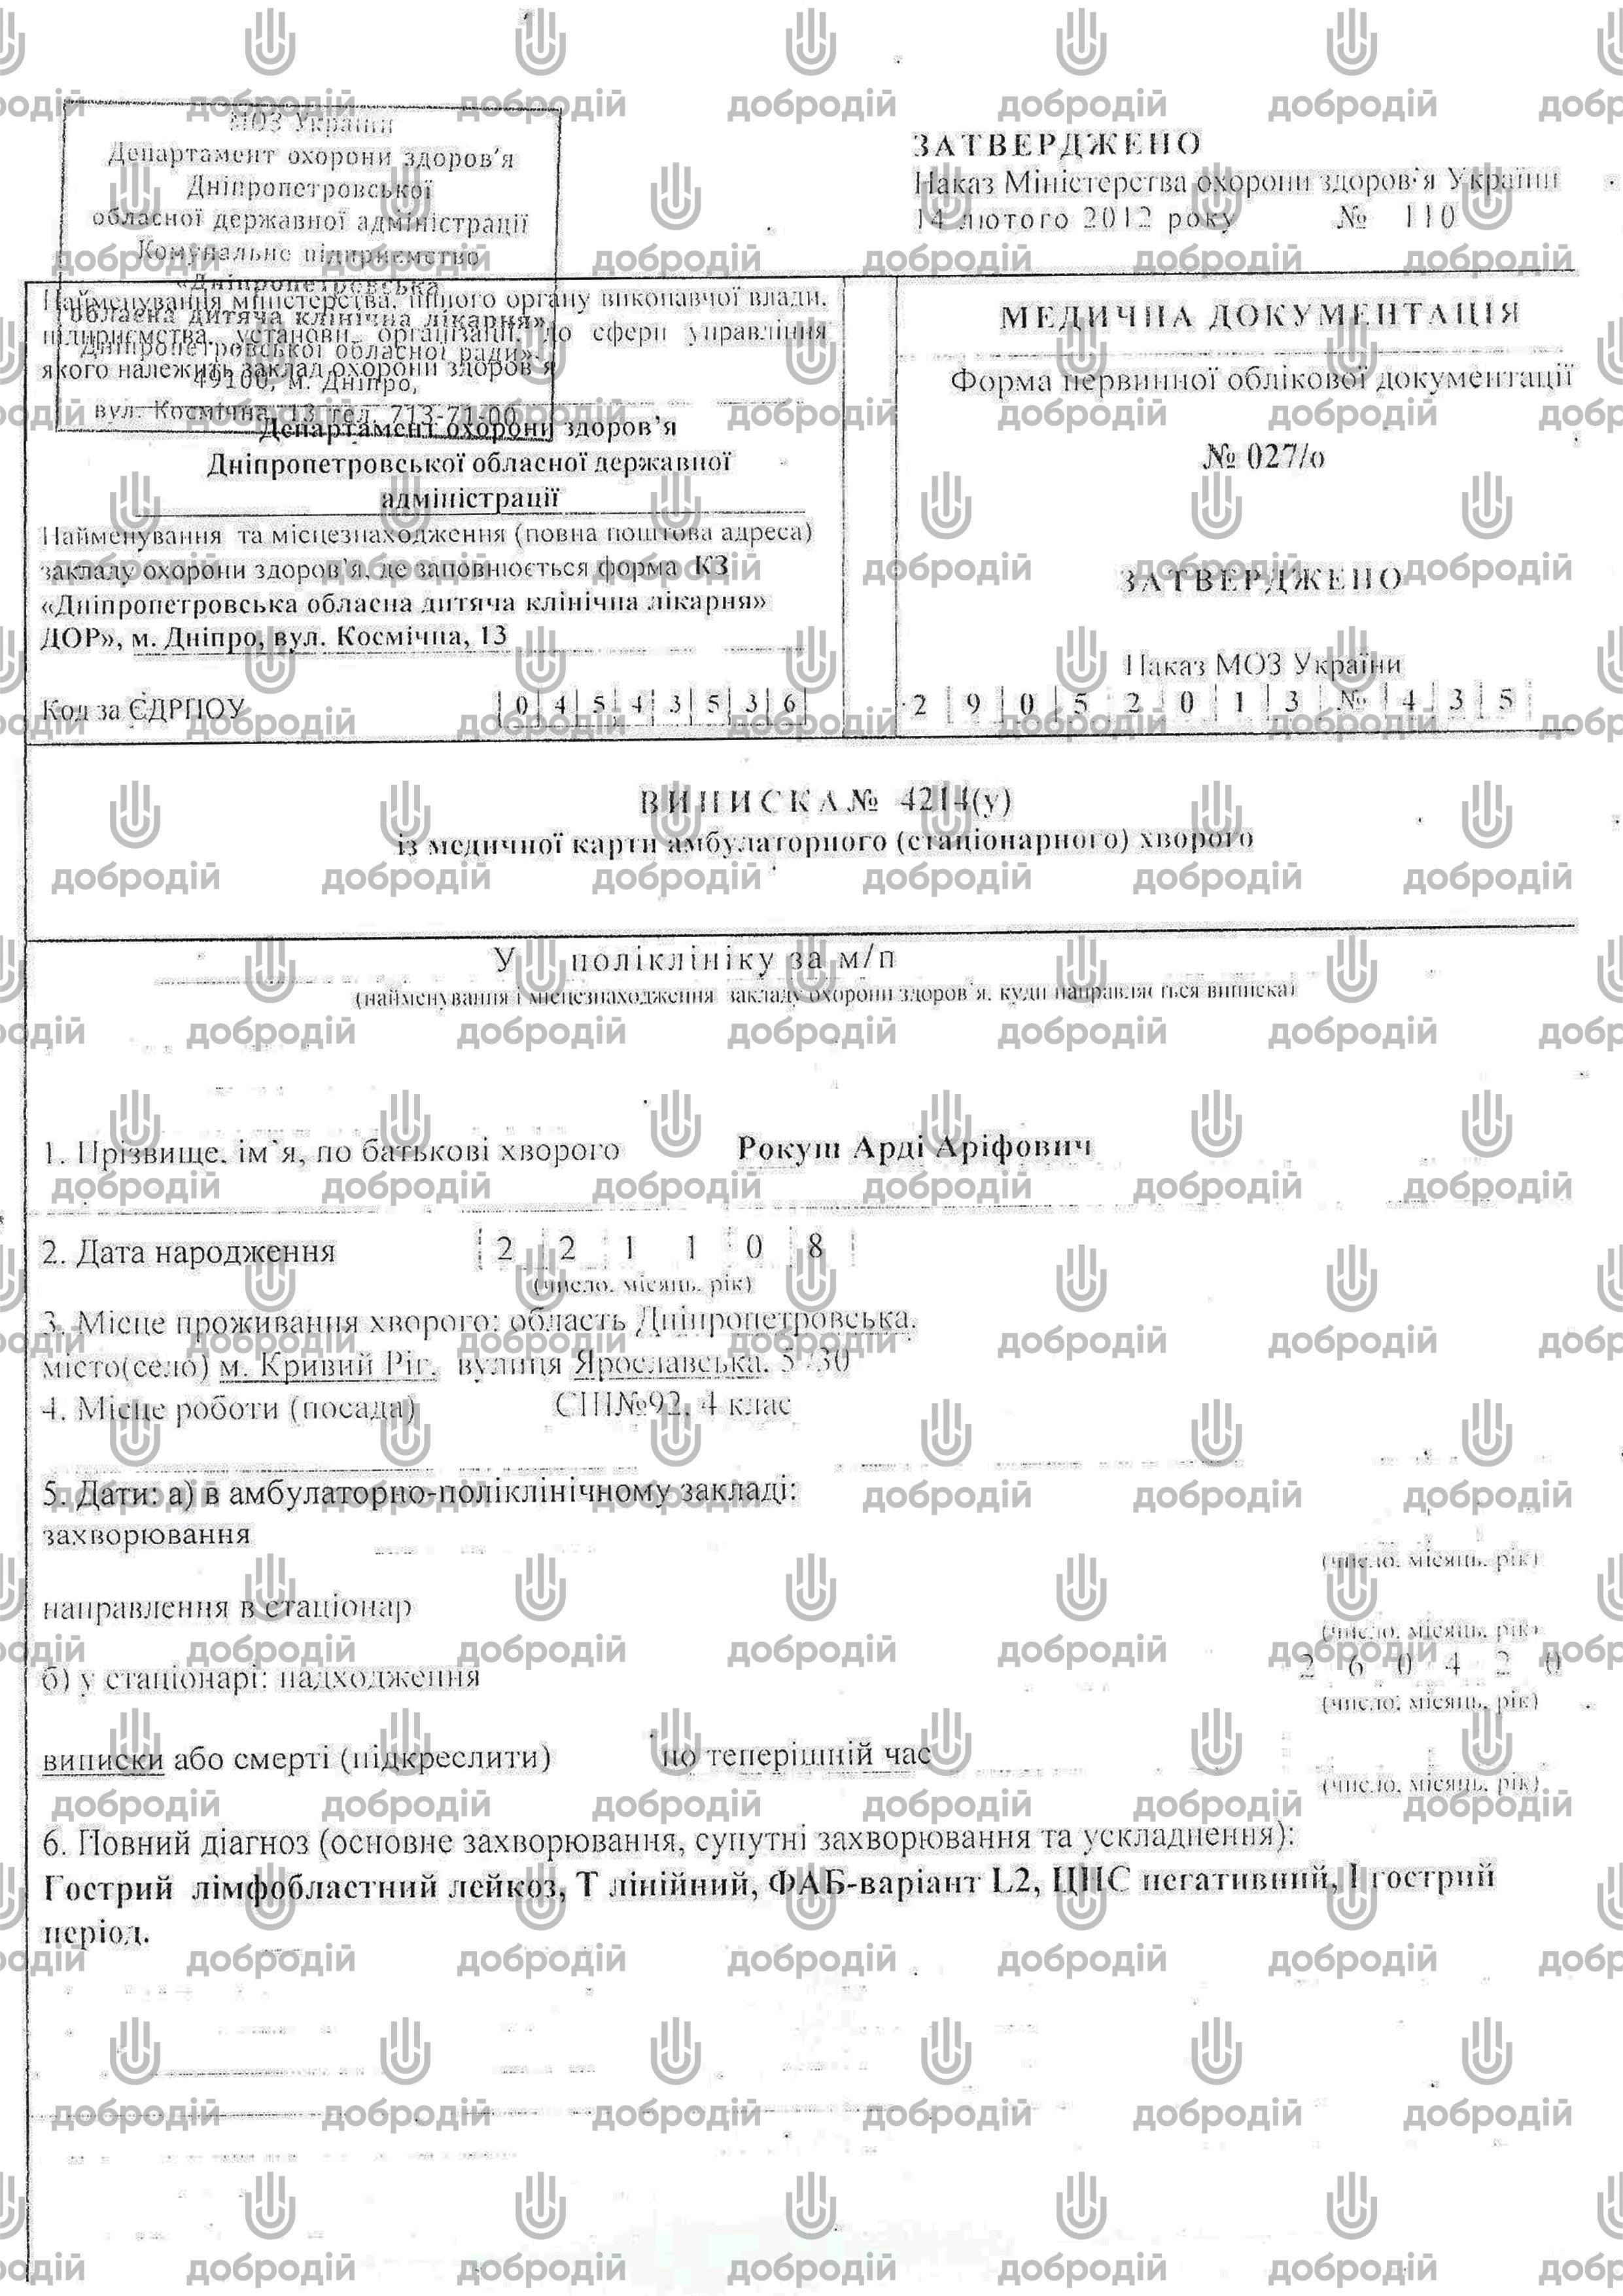 МОЗ України
Департамент охорони здоров'я
Дніпропетровської
обласної державної адміністрації
Комунальне підприємство
«Дніпропетровська
обласна дитяча клінічна лікарня»
Дніпропетровської обласної ради»
49100, м. Дніпро,
вул. Космічна, 13 тел. 713-71-00
ЗАТВЕРДЖЕНО
Наказ Міністерства охорони здоров'я України
14 лютого 2012 року № 110
Найменування міністерства, іншого органу виконавчої влади,
підприємства, установи, організації, до сфери управління
якого належить заклад охорони здоров'я
Департамент охорони здоров'я
Дніпропетровської обласної державної
адміністрації
Найменування та місцезнаходження (повна поштова адреса)
закладу охорони здоров'я, де заповнюється форма КЗ
«Дніпропетровська обласна дитяча клінічна лікарня»
ДОР», м. Дніпро, вул. Космічна, 13
Код за ЄДРПОУ 0 4 5 4 3 5 3 6
МЕДИЧНА ДОКУМЕНТАЦІЯ
Форма первинної облікової документації
№ 027/о
ЗАТВЕРДЖЕНО
Наказ МОЗ України
2 9 0 5 2 0 1 3 № 4 3 5
ВИПИСКА № 4214(у)
із медичної карти амбулаторного (стаціонарного) хворого
У поліклініку за м/п
(найменування і місцезнаходження закладу охорони здоров'я, куди направляється виписка)
1. Прізвище, ім`я, по батькові хворого Рокуш Арді Аріфович
2. Дата народження 2 2 1 1 0 8
(число, місяць, рік)
3. Місце проживання хворого: область Дніпропетровська,
місто(село) м. Кривий Ріг, вулиця Ярославська, 5 /30
4. Місце роботи (посада) СШ№92, 4 клас
5. Дати: а) в амбулаторно-поліклінічному закладі:
захворювання
(число, місяць, рік)
направлення в стаціонар
(число, місяць, рік)
б) у стаціонарі: надходження 2 6 0 4 2 0
(число, місяць, рік)
виписки або смерті (підкреслити) по теперішній час
(число, місяць, рік)
6. Повний діагноз (основне захворювання, супутні захворювання та ускладнення):
Гострий лімфобластний лейкоз, Т лінійний, ФАБ-варіант L2, ЦНС негативний, І гострий
період.
добродій